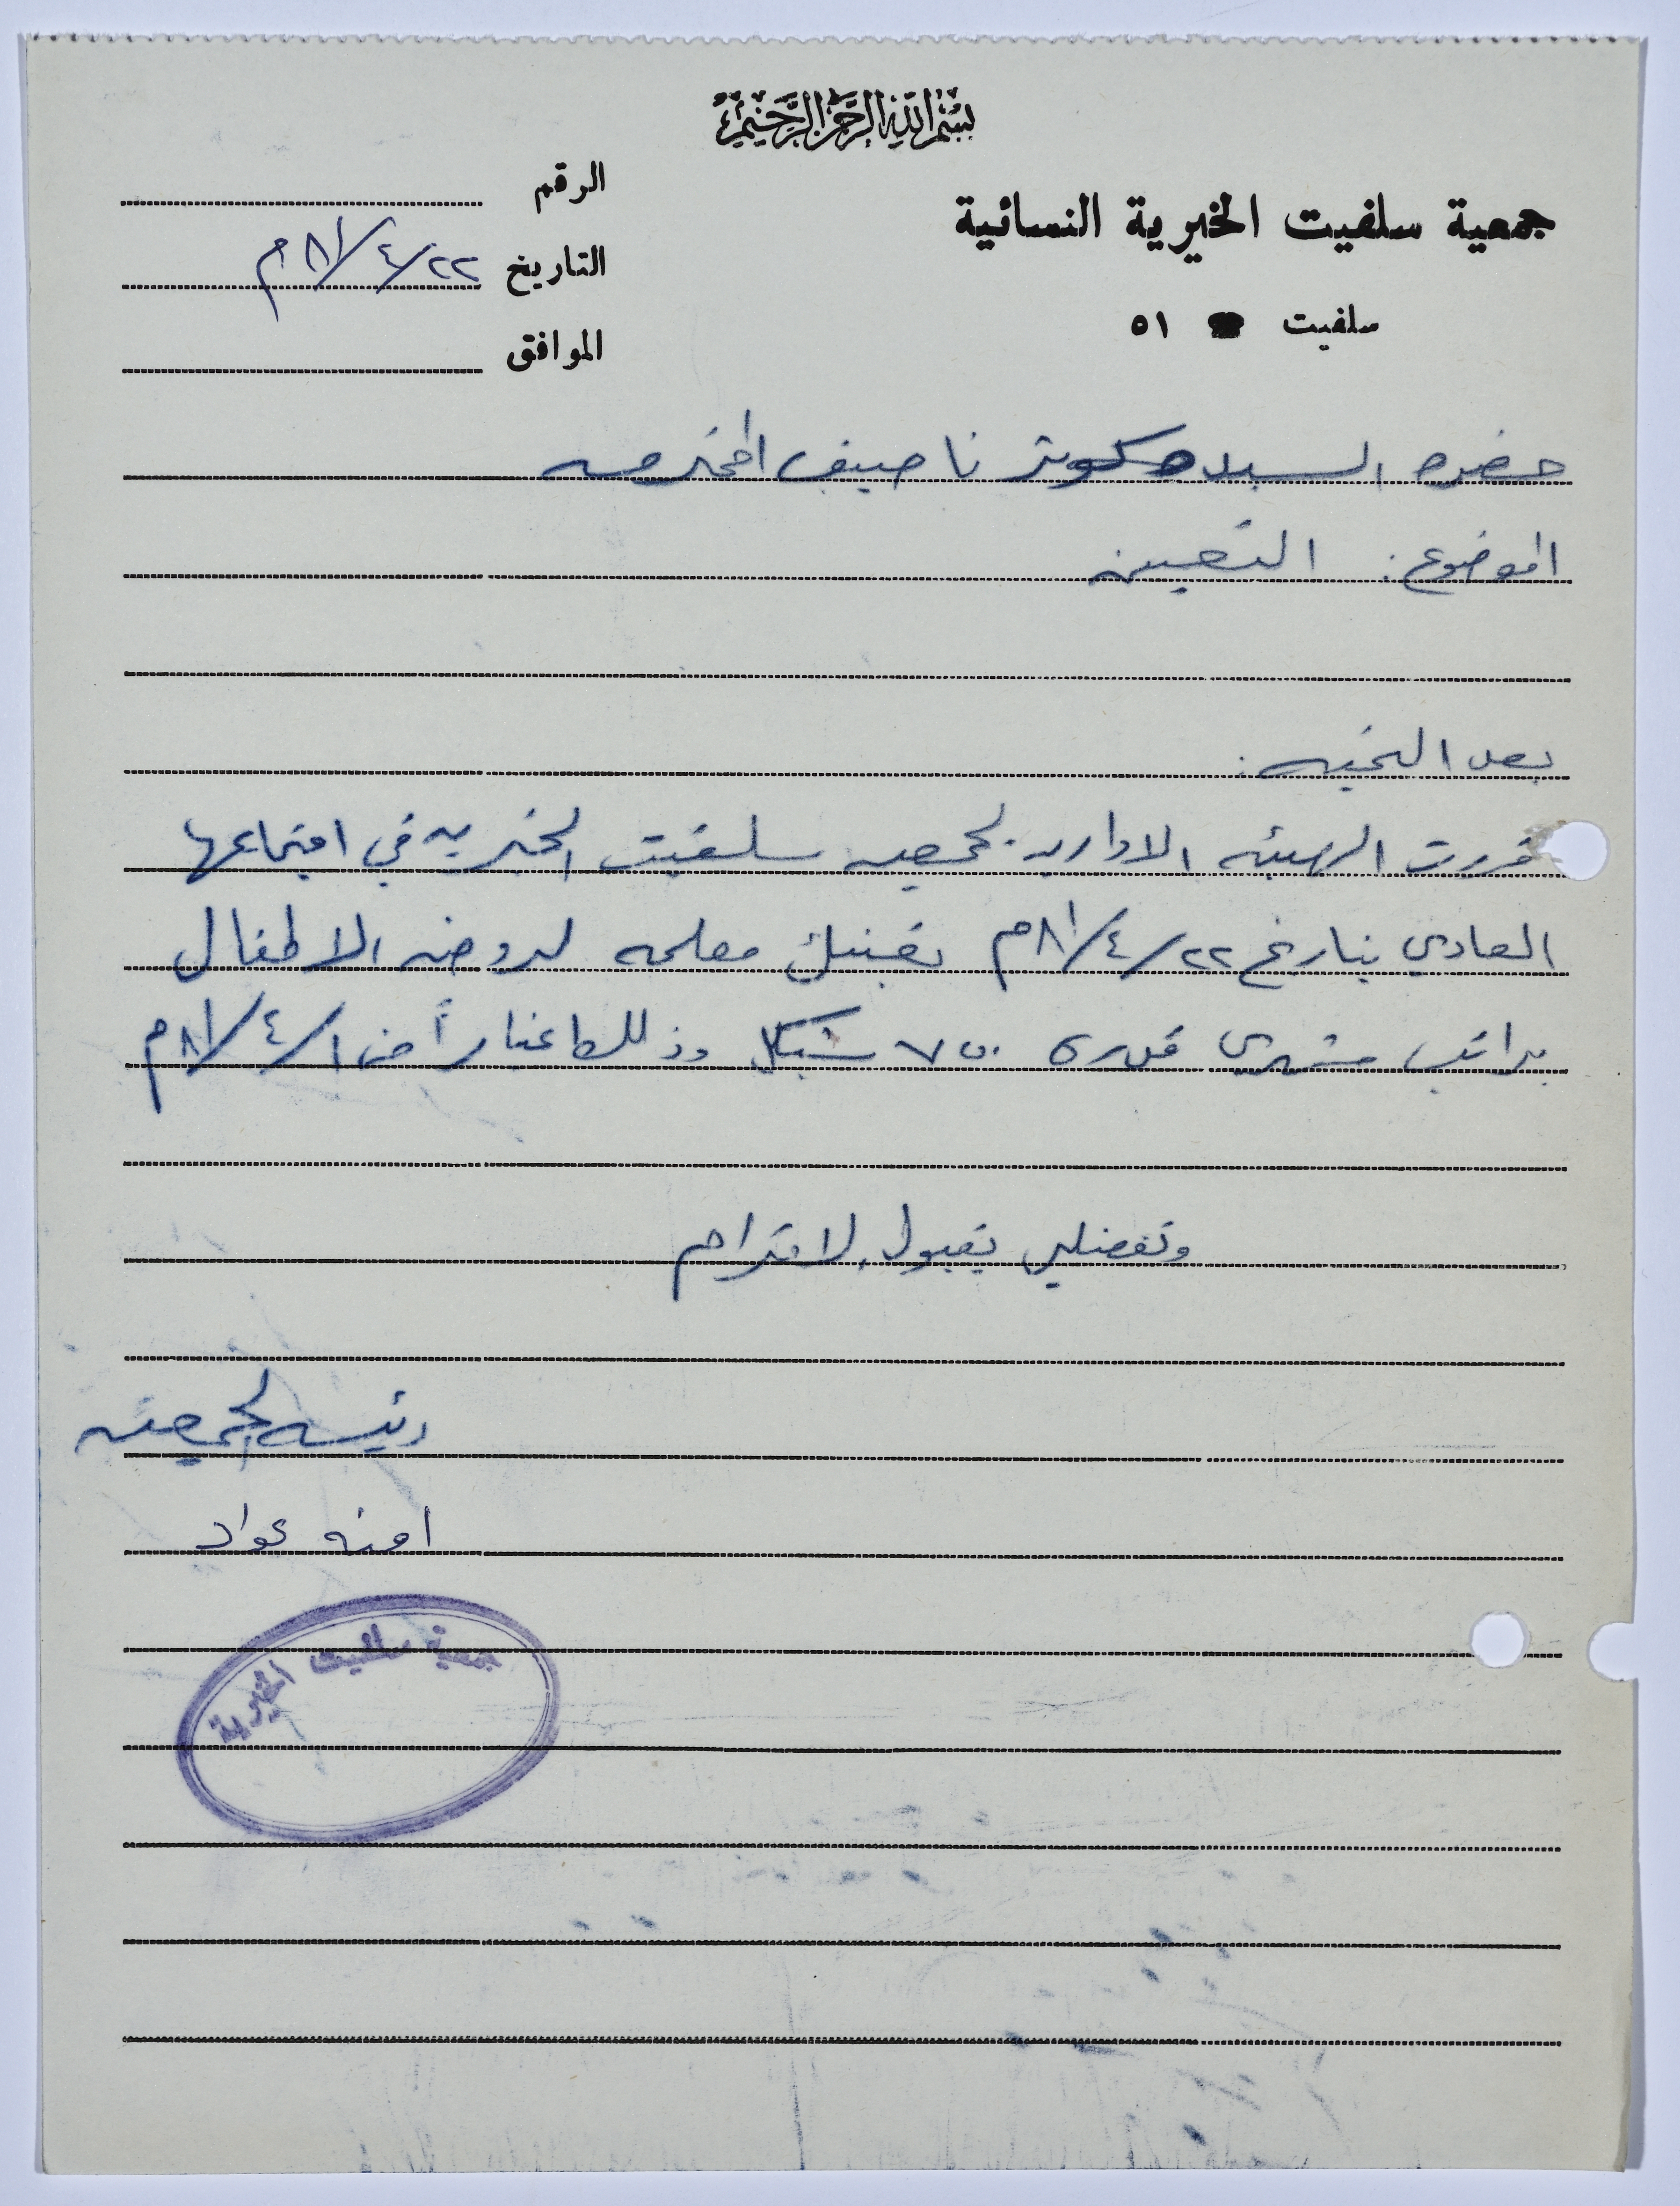 بسم الله الرحمن الرحيم
جمعية سلفيت الخيرية النسائية
سلفيت ٥١
الرقم
التاريخ ٢٢/٤/٨١م
الموافق
حضره السيده كوثر ناصيف المحترمه
الموضوع: التعيين
بعد التحيه:
قررت الهيئه الاداريه لجمعيه سلفيت الخيريه في اجتماعها
العادي بتاريخ ٢٢/٤/٨١م تعينك معلمه لروضه الاطفال
براتب شهري قدره ٧٥٠ شيكل وذلك اعتباراً من ١/٤/٨١م
وتفضلي بقبول الاحترام
رئيسه الجمعيه
امنه عواد
جمعية سلفيت الخيرية